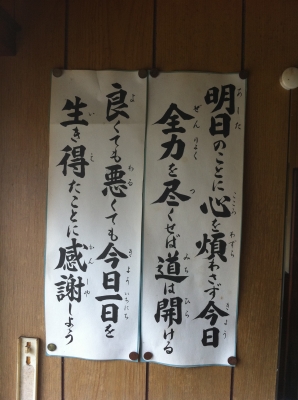 明日のことに心を煩わさず今日
全力を尽くせば道は開ける
良くても悪くても今日一日を
生き得たことに感謝しよう